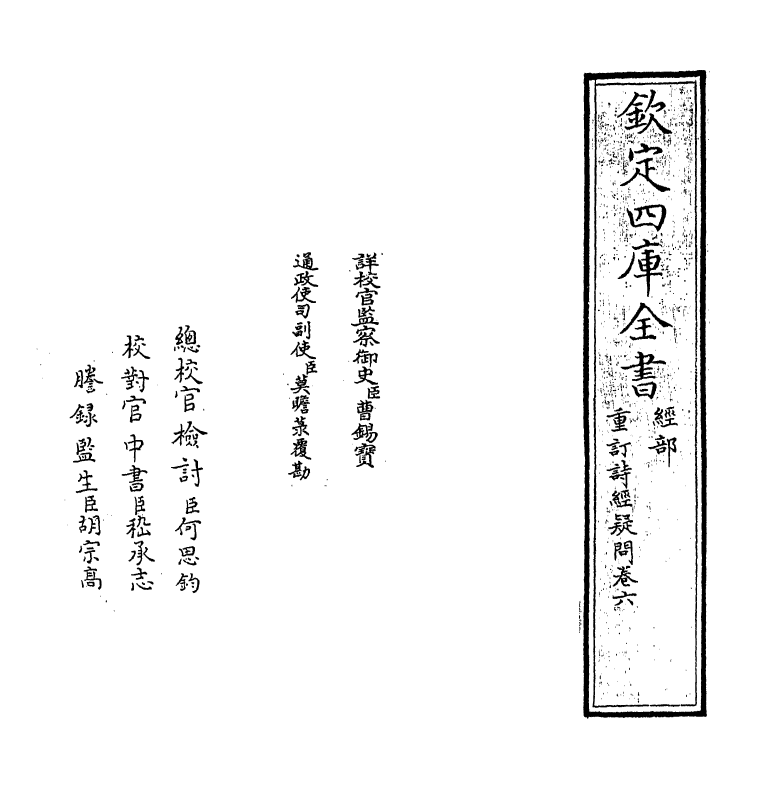 欽定四庫全書
經部
重訂詩經疑問卷六
詳校官監察御史臣曹錫寶
通政使司副使臣莫瞻菉覆勘
總校官檢討臣何思鈞
校對官中書臣嵇承志
謄録監生臣胡宗高